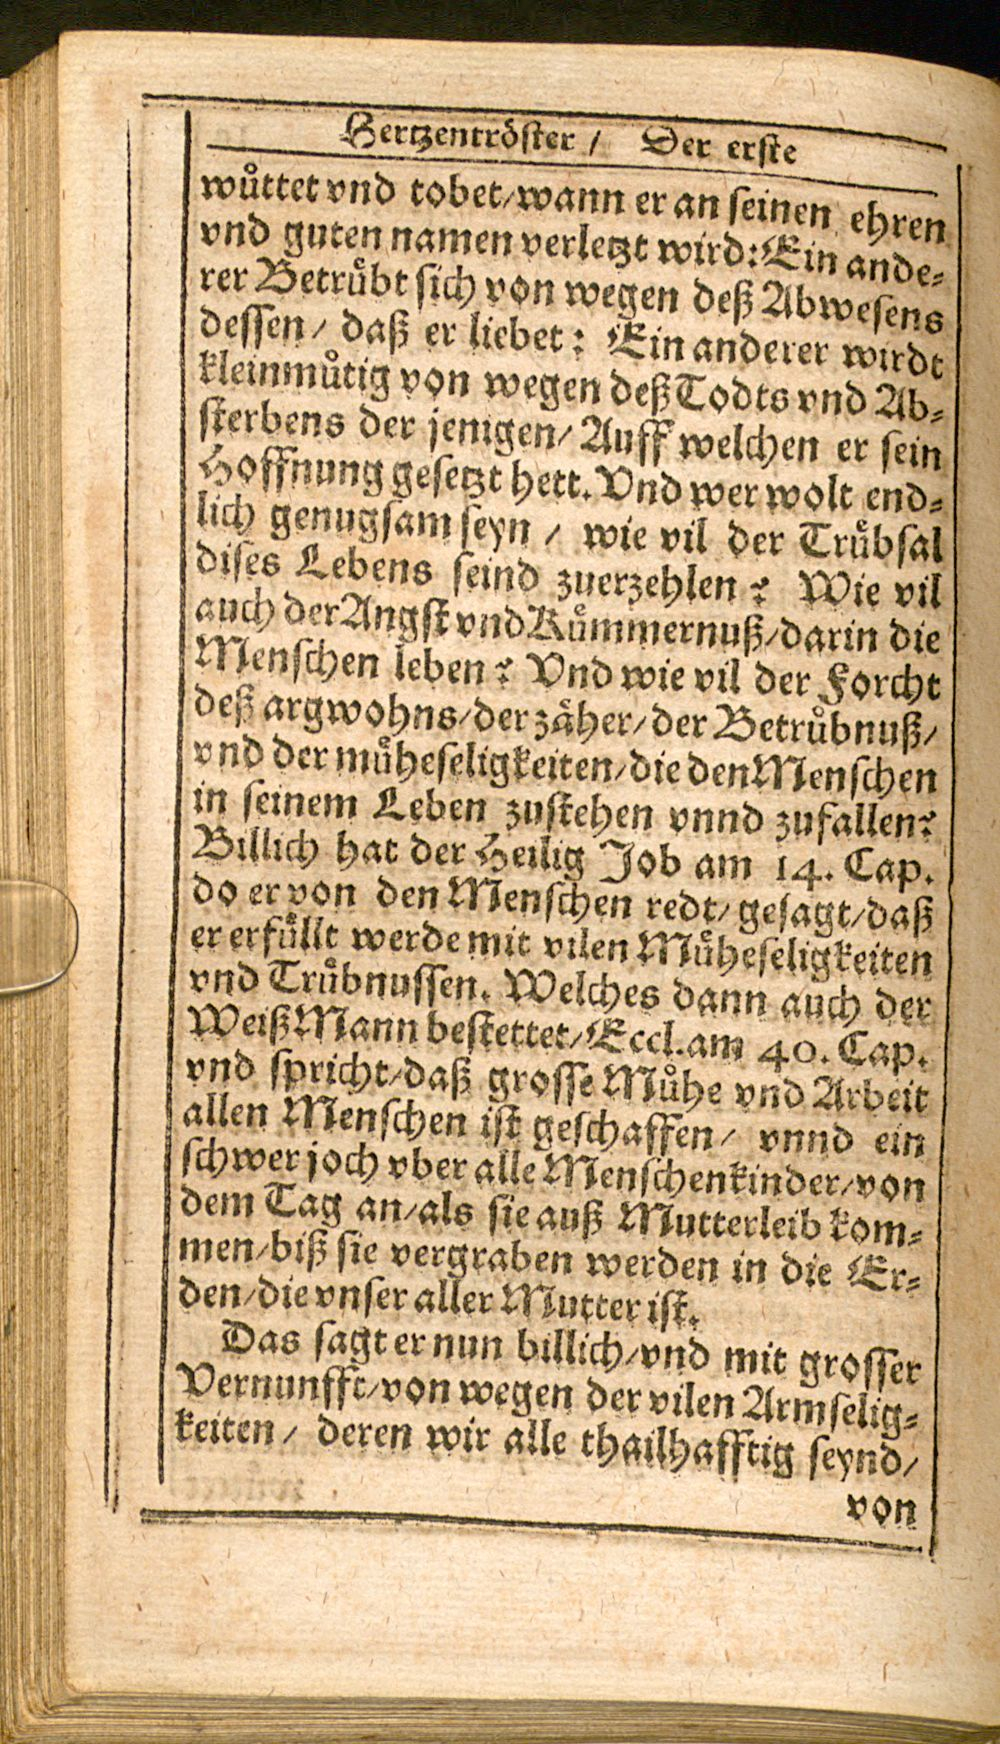 Hertzentröster / Der erste
wuͤttet vnd tobet / wann er an seinen ehren
vnd guten namen verletzt wird: Ein ande-
rer Betruͤbt sich von wegen deß Abwesens
dessen / daß er liebet: Ein anderer wirdt
kleinmuͤtig von wegen deß Todts vnd Ab-
sterbens der jenigen / Auff welchen er sein
Hoffnung gesetzt hett. Vnd wer wolt end-
lich genugsam seyn / wie vil der Truͤbsal
dises Lebens seind zuerzehlen? Wie vil
auch der Angst vnd Kuͤmmernuß / darin die
Menschen leben? Vnd wie vil der Forcht
deß argwohns / der zaͤher / der Betruͤbnuß /
vnd der muͤheseligkeiten / die den Menschen
in seinem Leben zustehen vnnd zufallen?
Billich hat der Heilig Job am 14. Cap.
do er von den Menschen redt / gesagt / daß
er erfuͤllt werde mit vilen Muͤheseligkeiten
vnd Truͤbnussen. Welches dann auch der
Weiß Mann bestettet / Eccl. am 40. Cap.
vnd spricht / daß grosse Muͤhe vnd Arbeit
allen Menschen ist geschaffen / vnnd ein
schwer joch vber alle Menschenkinder / von
dem Tag an / als sie auß Mutterleib kom-
men / biß sie vergraben werden in die Er-
den / die vnser aller Mutter ist.
Das sagt er nun billich / vnd mit grosser
Vernunfft / von wegen der vilen Armselig-
keiten / deren wir alle thailhafftig seynd /
von